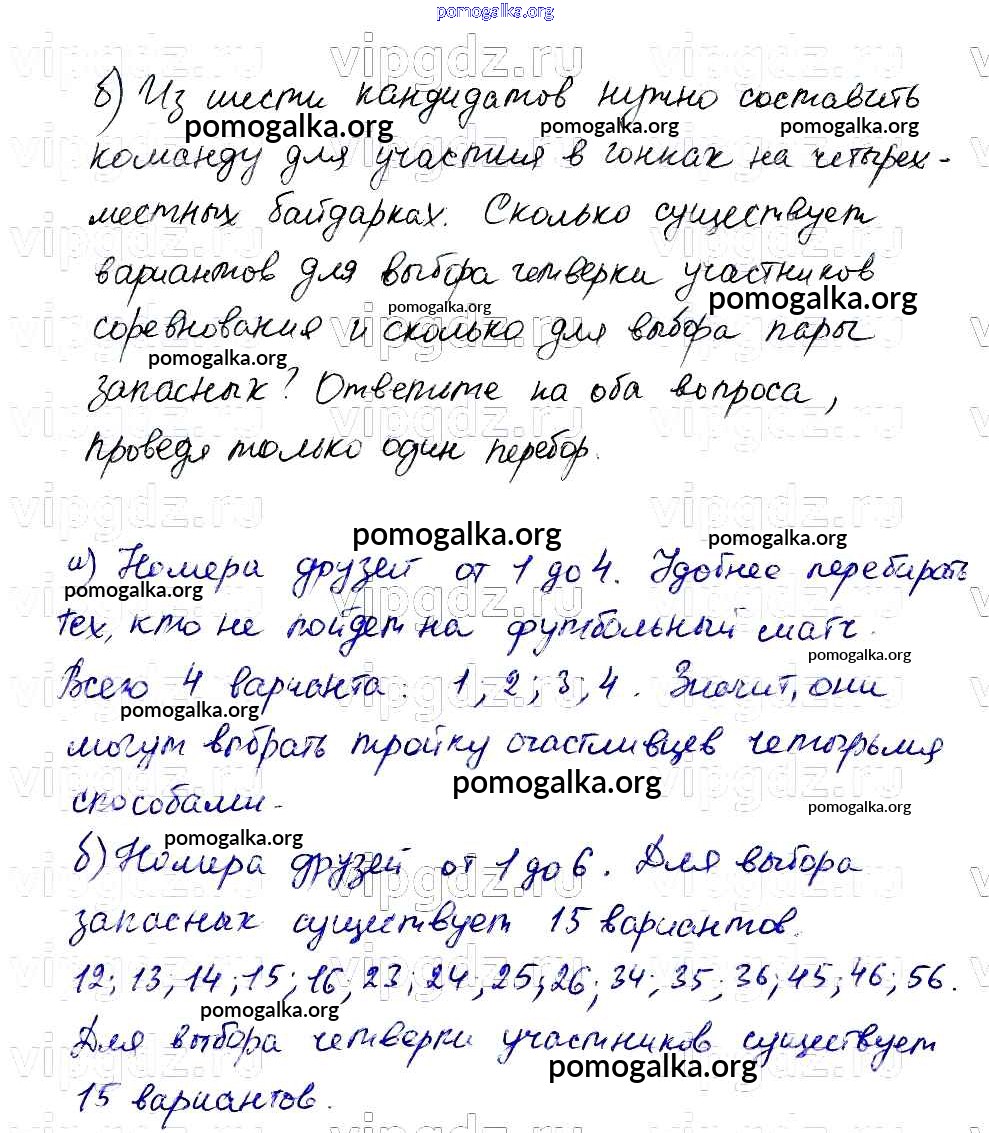 pomogalka.org
б) Из шести кандидатов нужно составить
команду для участия в гонках на четырех-
местных байдарках. Сколько существует
вариантов для выбора четверки участников
соревнования и сколько для выбора пары
запасных? Ответьте на оба вопроса,
проведя только один перебор.
а) Номера друзей от 1 до 4. Удобнее перебирать
тех, кто не пойдет на футбольный матч.
Всего 4 варианта: 1; 2; 3; 4. Значит, они
могут выбрать тройку счастливцев четырьмя
способами.
б) Номера друзей от 1 до 6. Для выбора
запасных существует 15 вариантов.
12; 13; 14; 15; 16; 23; 24; 25; 26; 34; 35; 36; 45; 46; 56.
Для выбора четверки участников существует
15 вариантов.